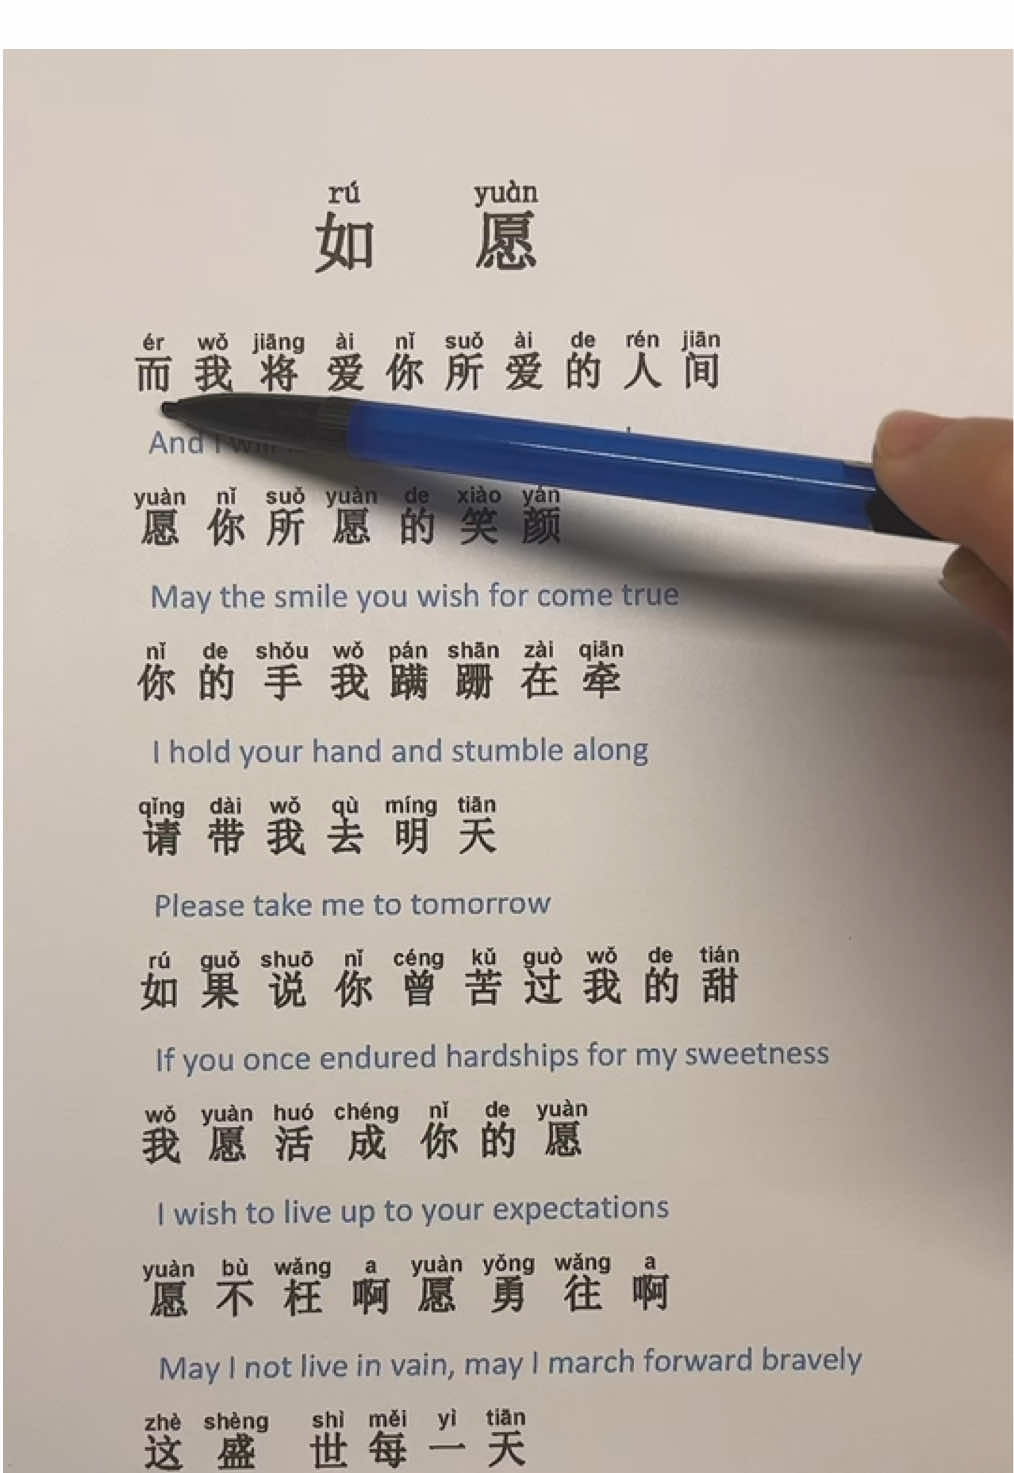 rú yuàn
如愿
ér wǒ jiāng ài nǐ suǒ ài de rén jiān
而我将爱你所爱的人间
And I will
yuàn nǐ suǒ yuàn de xiào yán
愿你所愿的笑颜
May the smile you wish for come true
nǐ de shǒu wǒ pán shān zài qiān
你的手我蹒跚在牵
I hold your hand and stumble along
qǐng dài wǒ qù míng tiān
请带我去明天
Please take me to tomorrow
rú guǒ shuō nǐ céng kǔ guò wǒ de tián
如果说你曾苦过我的甜
If you once endured hardships for my sweetness
wǒ yuàn huó chéng nǐ de yuàn
我愿活成你的愿
I wish to live up to your expectations
yuàn bù wǎng a yuàn yǒng wǎng a
愿不枉啊愿勇往啊
May I not live in vain, may I march forward bravely
zhè shèng shì měi yì tiān
这盛世每一天